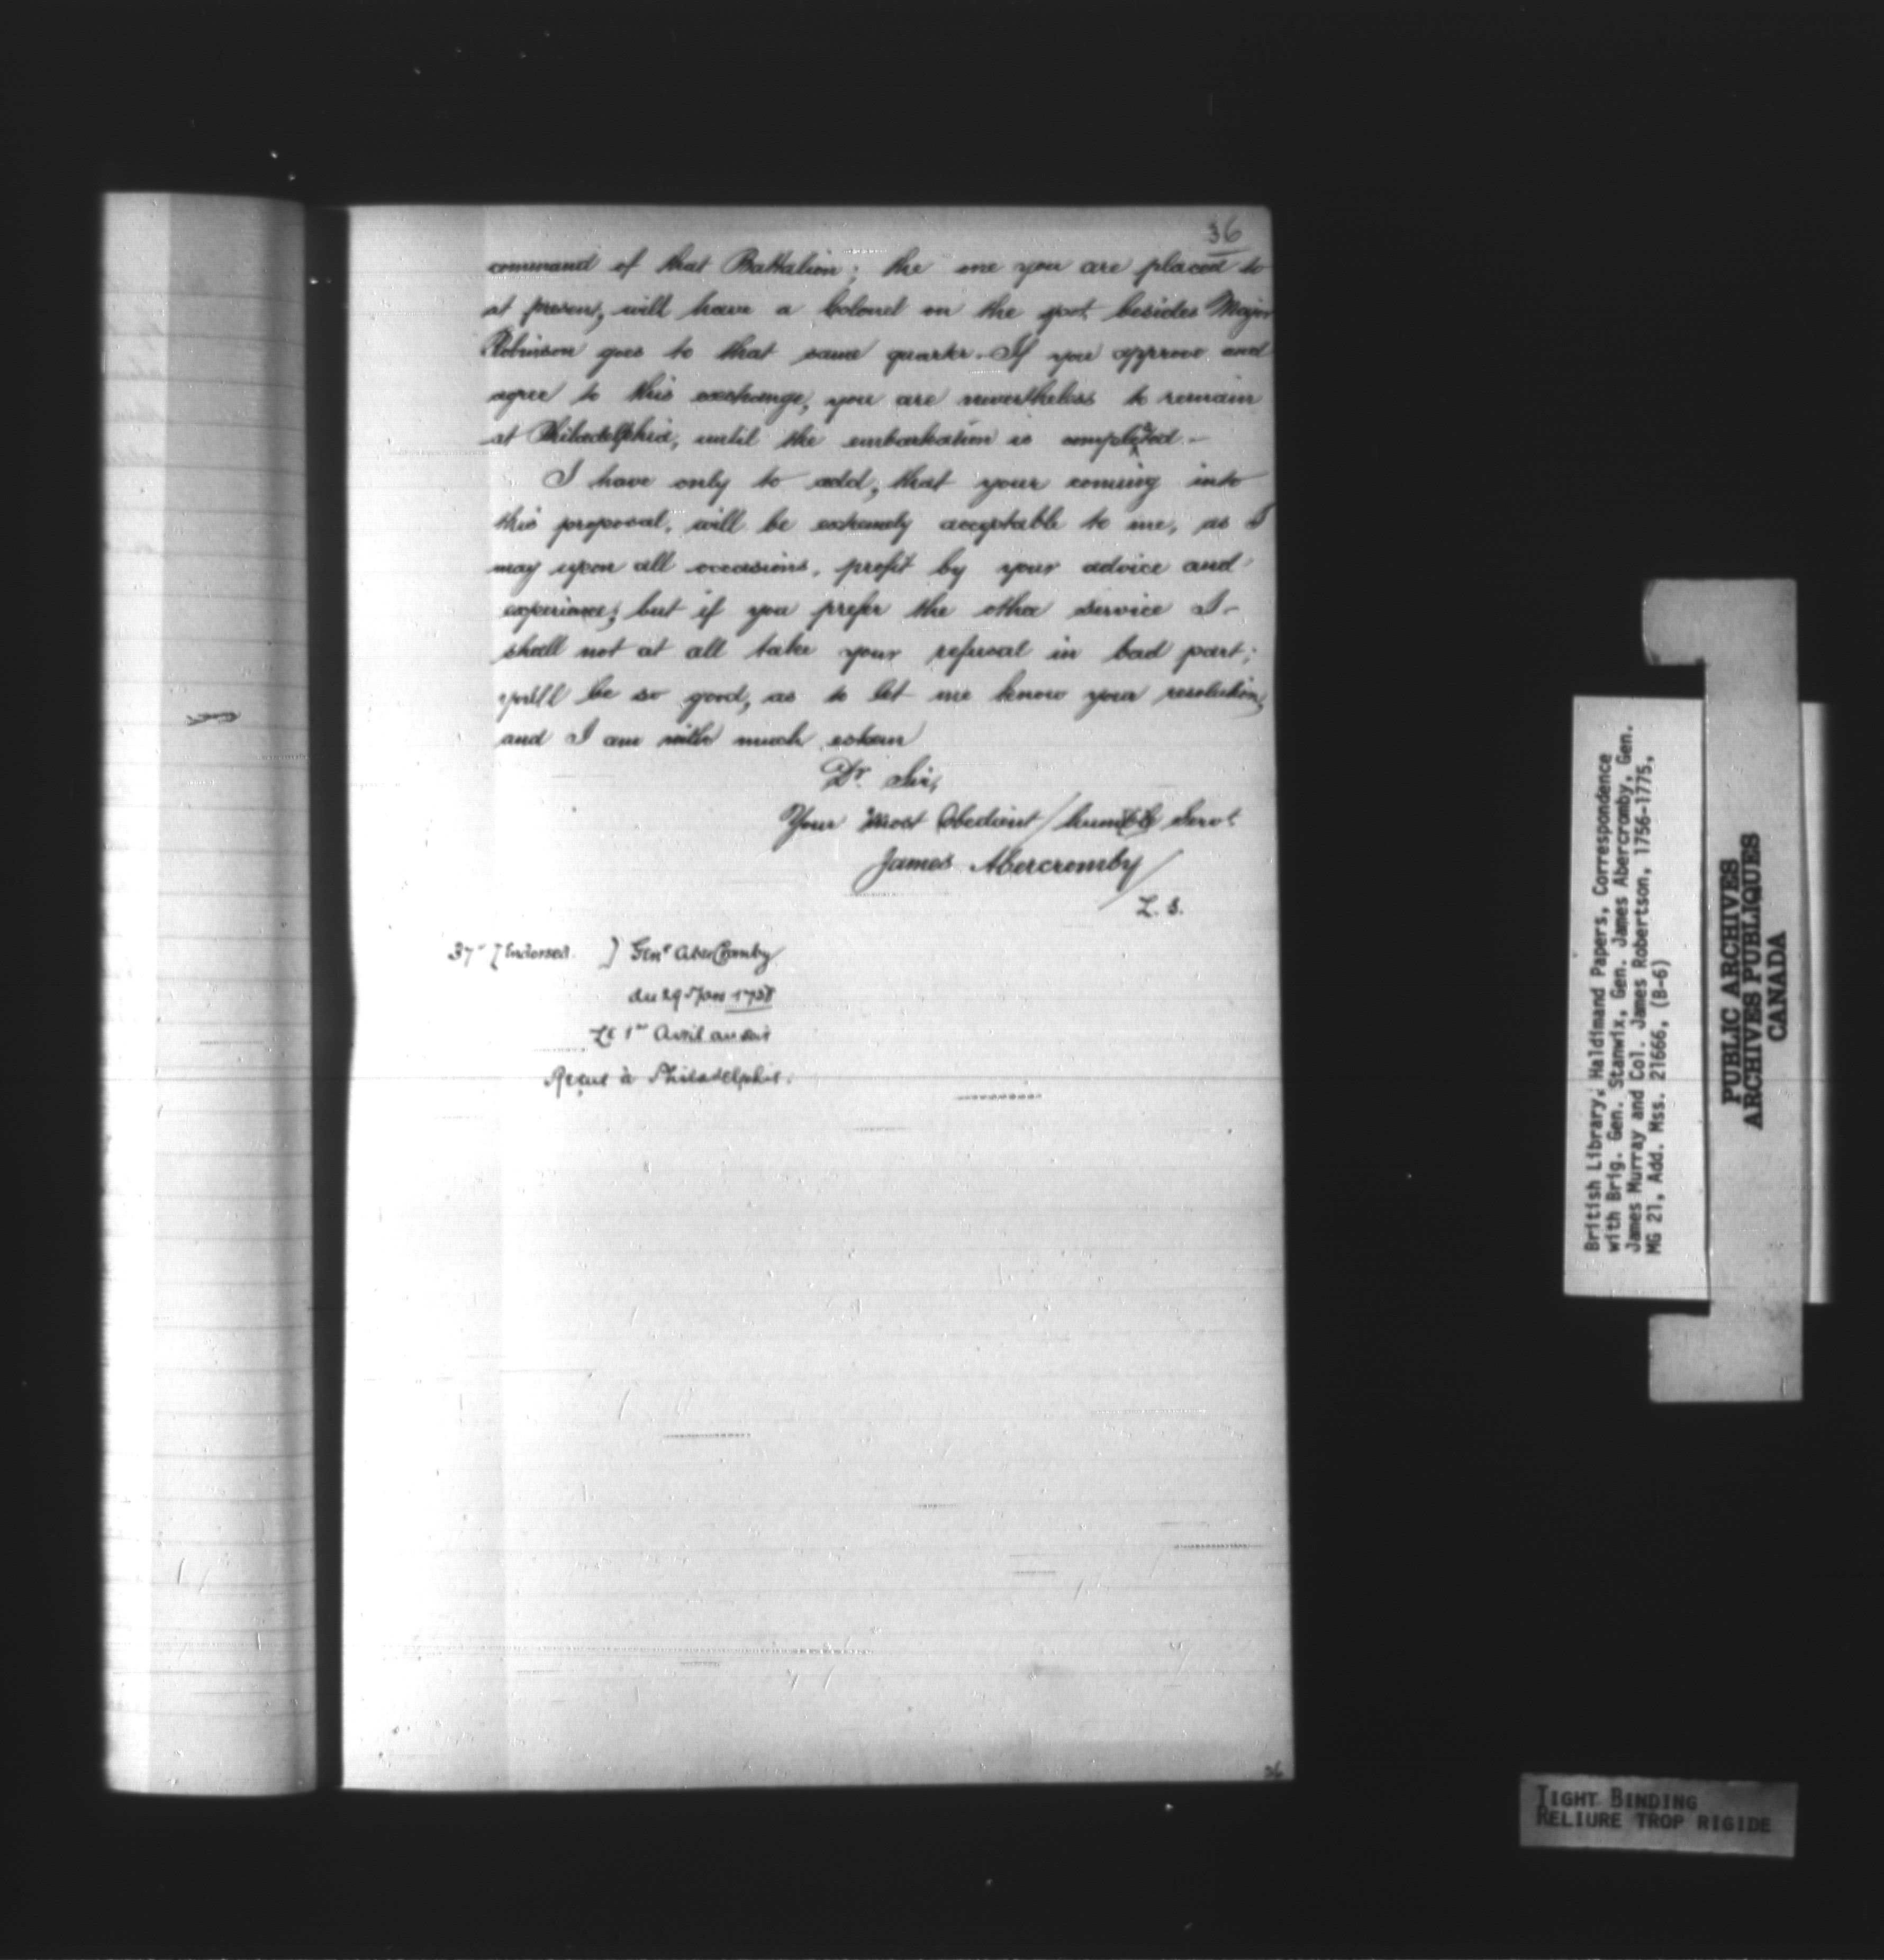 36
command of that Battalion; the one you are placed to
at present, will have a Colonel on the spot, besides Major
Robinson goes to that same quarter. If you approve and
agree to this exchange, you are nevertheless to remain
at Philadelphia, until the embarkation is completed.—
I have only to add, that your coming into
this proposal, will be extremely acceptable to me, as I
may upon all occasions, profit by your advice and
experience; but if you prefer the other service I
shall not at all take your refusal in bad part;
you'll be so good, as to let me know your resolution,
and I am with much esteem
Dr. Sir,
Your Most Obedient / humble Servt.
James Abercromby /
L. S.
37 [Endorsed. ] Genl AberCromby
du 29 1758
Le 1er Avril au soir
Reçue à Philadelphie.
36
British Library, Haldimand Papers, Correspondence
with Brig. Gen. Stanwix, Gen. James Abercromby, Gen.
James Murray and Col. James Robertson, 1756-1775,
MG 21, Add. Mss. 21666, (B-6)
PUBLIC ARCHIVES
ARCHIVES PUBLIQUES
CANADA
TIGHT BINDING
RELIURE TROP RIGIDE